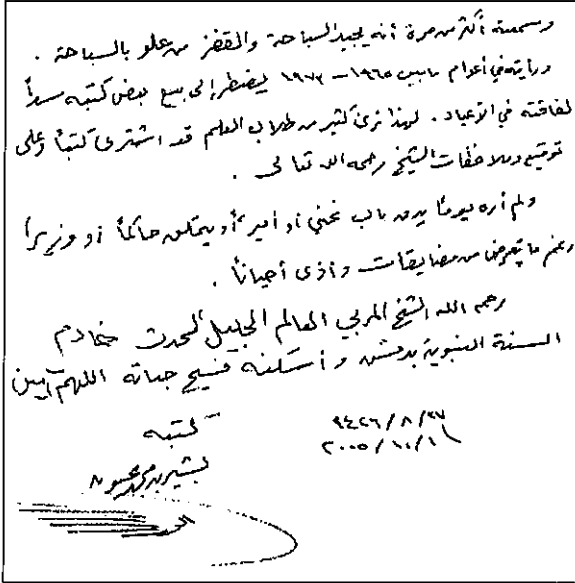 وسمعته أكثر من مرة أنه يجيد السباحة والقفز من علو بالسباحة .
ورأيته في أعوام مابين ١٩٦٥ – ١٩٧٢ ليضطر إلى بيع بعض كتبه سداً
لفاقته في الأعياد . لهذا نرى كثير من طلاب العلم قد اشترى كتباً وعلى
توقيع وملاحظات الشيخ رحمه الله تعالى .
ولم أره يوماً يدق باب غني أو أمير أو يتملق حاكماً أو وزيراً
رغم ما يتعرض من مضايقات وأذى أحياناً .
رحمه الله الشيخ المربي العالم الجليل المحدث خادم
السنة النبوية بدمشق وأسكنه فسيح جناته اللهم آمين
كتبه
١٤٢٦/٨/٢٧
٢٠٠٥/١٠/١
بشير بن محمد